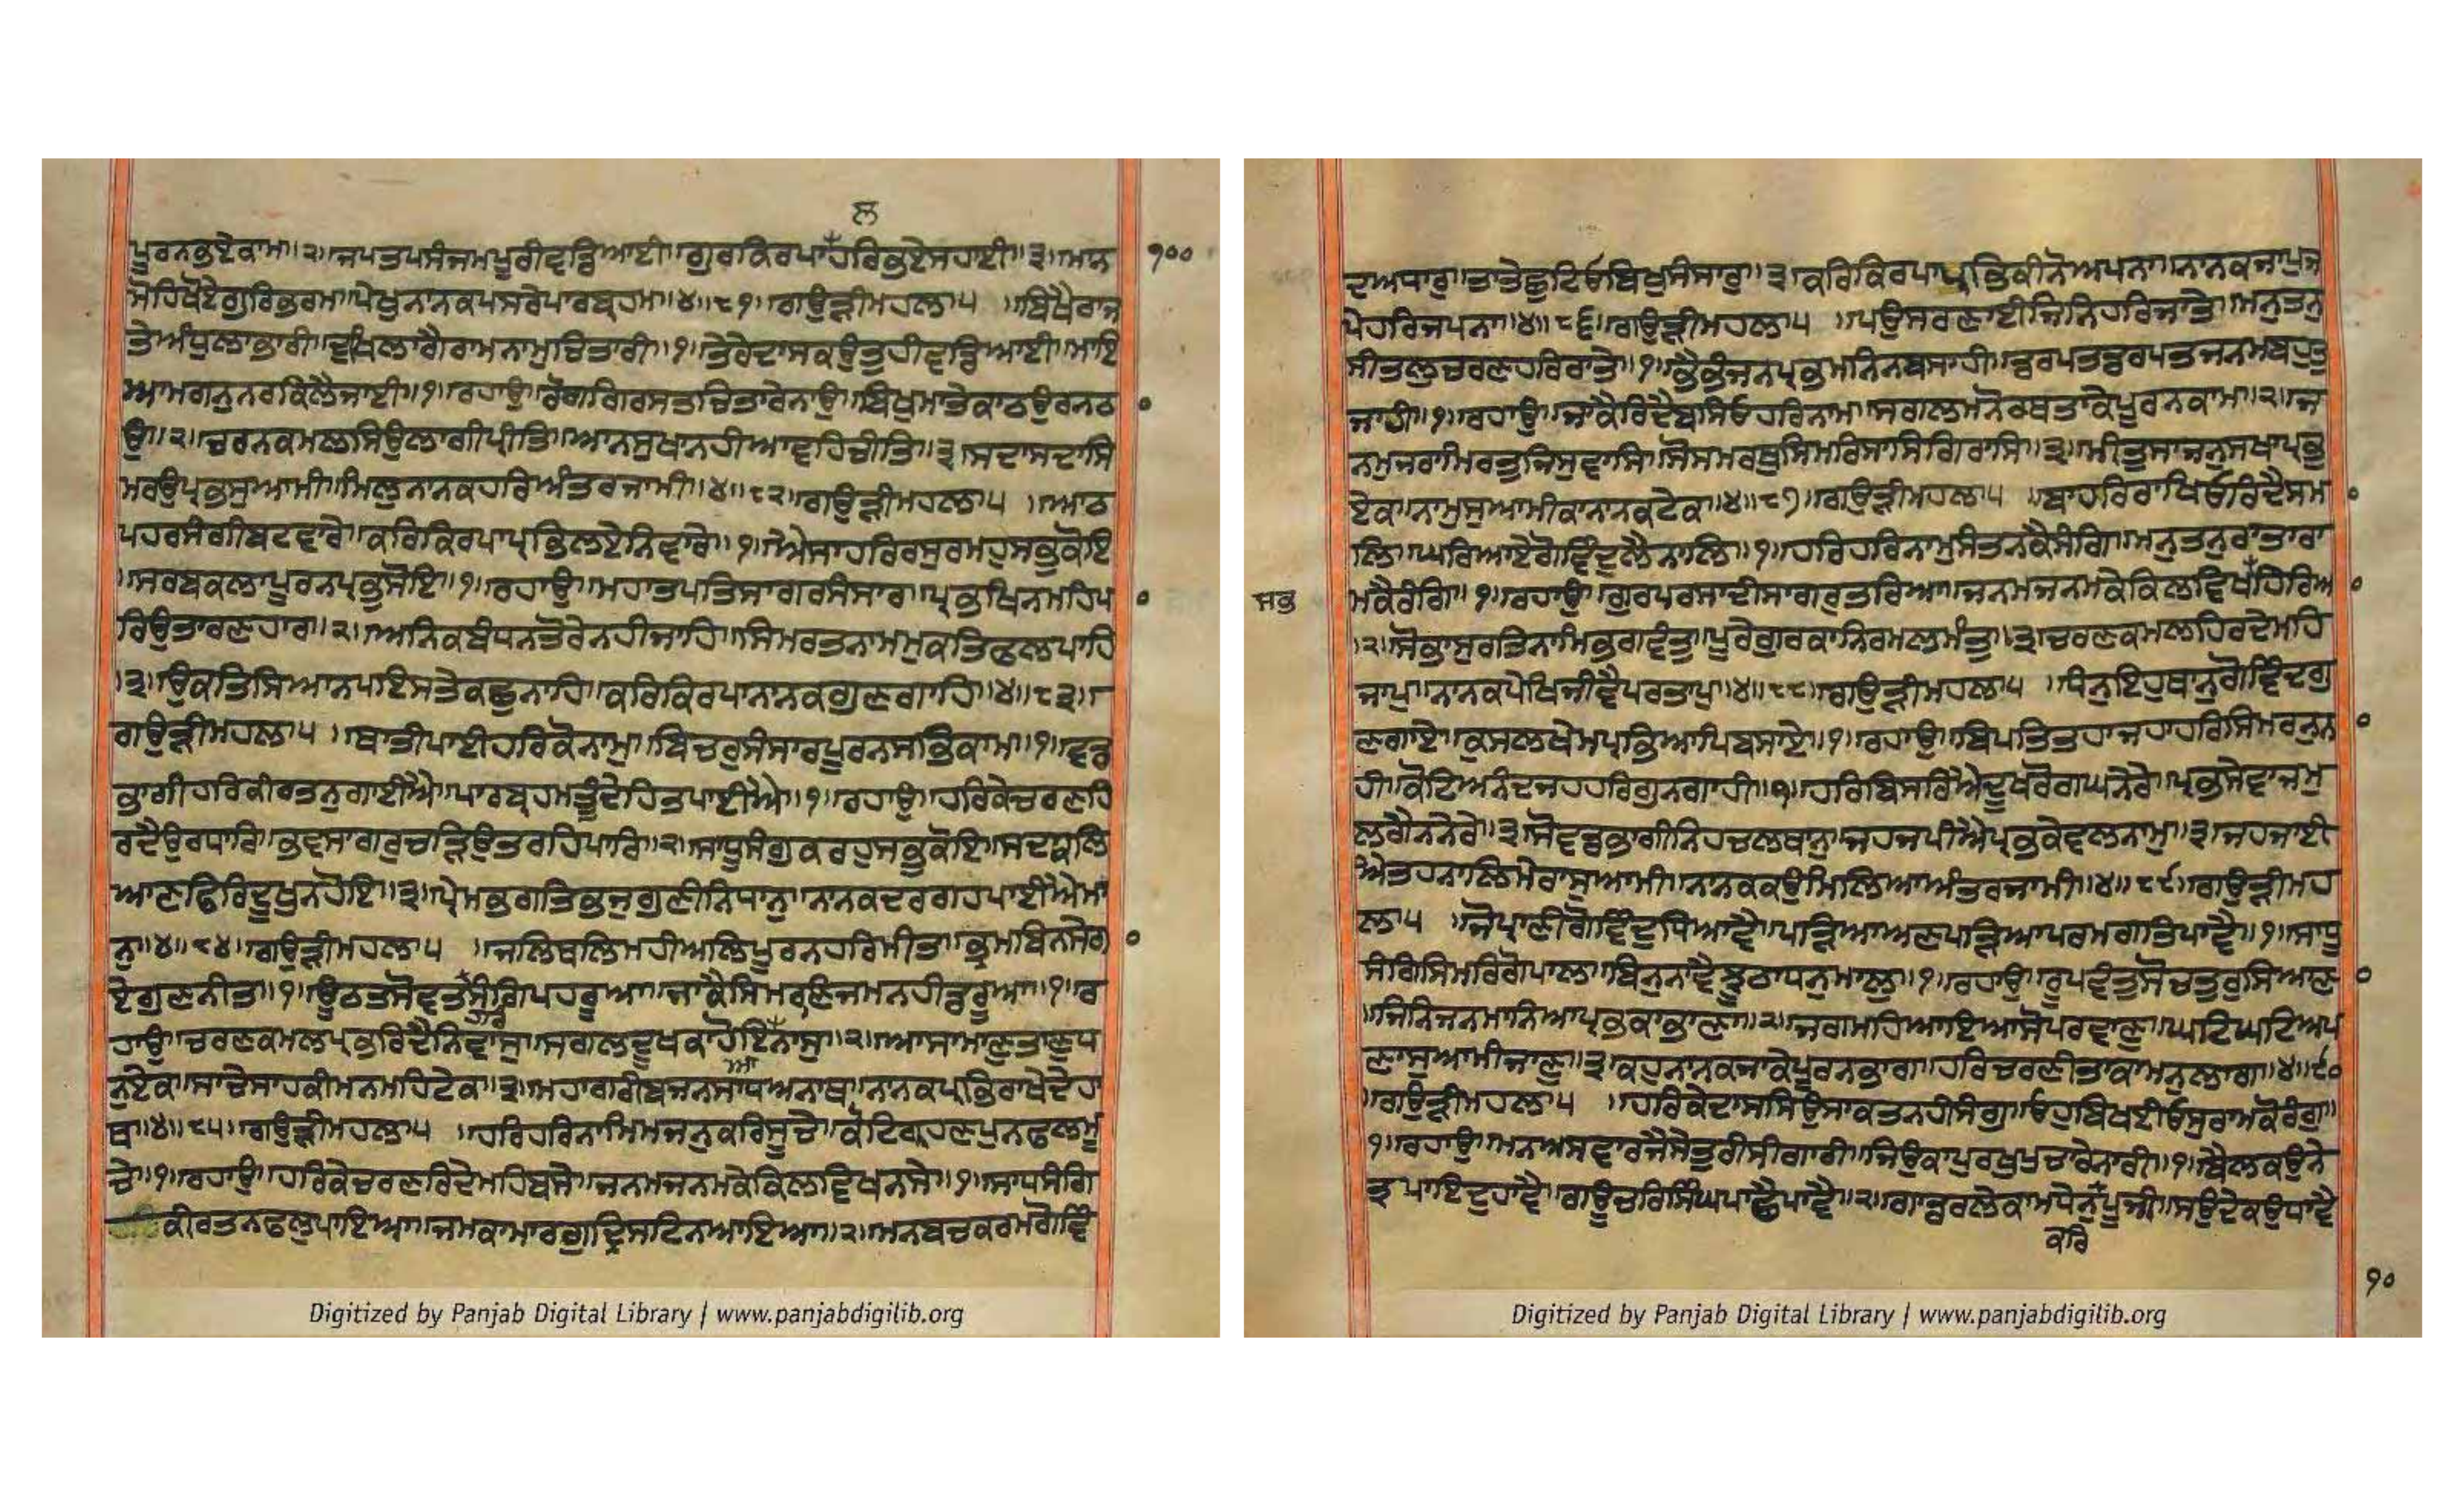 ਲ
ਪੂਰਨਭਏਕਾਮਾ॥੨॥ਜਪਤਪਸੰਜਮਪੂਰੀਵਡਿਆਈ॥ਗੁਰਕਿਰਪਾਹਰਿਭਏਸਹਾਈ॥੩॥ਮਾਨ ੧੦੦
ਮੋਹਿਖੋਏਗੁਰਿਭਰਮ॥ਪੇਖੁਨਾਨਕਪਸਰੇਪਾਰਬ੍ਰਹਮ॥੪॥੮੧॥ਗਉੜੀਮਹਲਾ੫ ॥ਬਿਖੈਰਾਜ
ਤੇਅੰਧੁਲਾਭਾਰੀ॥ਦੁਖਿਲਾਗੈਰਾਮਨਾਮੁਚਿਤਾਰੀ॥੧॥ਤੇਰੇਦਾਸਕਉਤੁਹੀਵਡਿਆਈ॥ਮਾਇ
ਆਮਗਨੁਨਰਕਿਲੈਜਾਈ॥੧॥ਰਹਾਉ॥ਰੋਗਗਿਰਸਤਚਿਤਾਰੇਨਾਉ॥ਬਿਖੁਮਾਤੇਕਾਠਉਰਨਠ
ਉ॥੨॥ਚਰਨਕਮਲਸਿਉਲਾਗੀਪ੍ਰੀਤਿ॥ਆਨਸੁਖਾਨਹੀਆਵਹਿਚੀਤਿ॥੩॥ਸਦਾਸਦਾਸਿ
ਮਰਉਪ੍ਰਭਸੁਆਮੀ॥ਮਿਲੁਨਾਨਕਹਰਿਅੰਤਰਜਾਮੀ॥੪॥੮੨॥ਗਉੜੀਮਹਲਾ੫ ॥ਆਠ
ਪਹਰਸੰਗੀਬਟਵਾਰੇ॥ਕਰਿਕਿਰਪਾਪ੍ਰਭਿਲਏਨਿਵਾਰੇ॥੧॥ਐਸਾਹਰਿਰਸੁਰਮਹੁਸਭੁਕੋਇ
॥ਸਰਬਕਲਾਪੂਰਨਪ੍ਰਭੁਸੋਇ॥੧॥ਰਹਾਉ॥ਮਹਾਤਪਤਿਸਾਗਰਸੰਸਾਰ॥ਪ੍ਰਭਖਿਨਮਹਿਪ
ਰਿਉਤਾਰਣਹਾਰ॥੨॥ਅਨਿਕਬੰਧਨਤੋਰੇਨਹੀਜਾਹਿ॥ਸਿਮਰਤਨਾਮਮੁਕਤਿਫਲਪਾਹਿ
॥੩॥ਉਕਤਿਸਿਆਨਪਇਸਤੇਕਛੁਨਾਹਿ॥ਕਰਿਕਿਰਪਾਨਾਨਕਗੁਣਗਾਹਿ॥੪॥੮੩॥
ਗਉੜੀਮਹਲਾ੫ ॥ਥਾਤੀਪਾਈਹਰਿਕੋਨਾਮੁ॥ਬਿਚਰੁਸੰਸਾਰਪੂਰਨਸਭਿਕਾਮ॥੧॥ਵਡ
ਭਾਗੀਹਰਿਕੀਰਤਨੁਗਾਈਐ॥ਪਾਰਬ੍ਰਹਮਤੂੰਦੇਹਿਤਪਾਈਐ॥੧॥ਰਹਾਉ॥ਹਰਿਕੇਚਰਣਹਿ
ਰਦੈਉਰਧਾਰਿ॥ਭਵਸਾਗਰੁਚੜਿਉਤਰਹਿਪਾਰਿ॥੨॥ਸਾਧੂਸੰਗੁਕਰਹੁਸਭੁਕੋਇ॥ਸਦਕਲਿ
ਆਣਫਿਰਿਦੂਖੁਨਹੋਇ॥੩॥ਪ੍ਰੇਮਭਗਤਿਭਜੁਗੁਣੀਨਿਧਾਨੁ॥ਨਾਨਕਦਰਗਹਪਾਈਐਮਾ
ਨੁ॥੪॥੮੪॥ਗਉੜੀਮਹਲਾ੫ ॥ਜਲਿਥਲਿਮਹੀਅਲਿਪੂਰਨਹਰਿਮੀਤ॥ਭ੍ਰਮਬਿਨਸੇਗ
ਏਗੁਣਨੀਤ॥੧॥ਊਠਤਸੋਵਤਸੰਗਿਪਹਰੂਆ॥ਜਾਕੈਸਿਮਰਣਿਜਮਨਹੀਡਰੂਆ॥੧॥ਰ
ਹਾਉ॥ਚਰਣਕਮਲਪ੍ਰਭਰਿਦੈਨਿਵਾਸੁ॥ਸਗਲਦੂਖਕਾਹੋਇਨਾਸੁ॥੨॥ਆਸਾਮਾਣੁਤਾਣੁਧ
ਨੁਏਕ॥ਸਾਚੇਸਾਹਕੀਮਨਮਹਿਟੇਕ॥੩॥ਮਹਾਗਰੀਬਜਨਸਾਧਅਨਾਥ॥ਨਾਨਕਪ੍ਰਭਿਰਾਖੇਦੇਹਾ
ਥ॥੪॥੮੫॥ਗਉੜੀਮਹਲਾ੫ ॥ਹਰਿਹਰਿਨਾਮਿਮਜਨੁਕਰਿਸੂਚੇ॥ਕੋਟਿਗ੍ਰਹਣਪੁਨਫਲਮੂ
ਚੇ॥੧॥ਰਹਾਉ॥ਹਰਿਕੇਚਰਣਰਿਦੇਮਹਿਬਸੇ॥ਜਨਮਜਨਮਕੇਕਿਲਵਿਖਨਸੇ॥੧॥ਸਾਧਸੰਗਿ
ਕੀਰਤਨਫਲੁਪਾਇਆ॥ਜਮਕਾਮਾਰਗੁਦ੍ਰਿਸਟਿਨਆਇਆ॥੨॥ਮਨਬਚਕਰਮਗੋਵਿੰ
ਦਅਧਾਰੁ॥ਤਾਤੇਛੁਟਿਓਬਿਖੁਸੰਸਾਰੁ॥੩॥ਕਰਿਕਿਰਪਾਪ੍ਰਭਿਕੀਨੋਅਪਨਾ॥ਨਾਨਕਜਾਪੁਜ
ਪੇਹਰਿਜਪਨਾ॥੪॥੮੬॥ਗਉੜੀਮਹਲਾ੫ ॥ਪਉਸਰਣਾਈਜਿਨਿਹਰਿਜਾਤੇ॥ਮਨੁਤਨੁ
ਸੀਤਲੁਚਰਣਹਰਿਰਾਤੇ॥੧॥ਭੈਭੰਜਨਪ੍ਰਭਮਨਿਨਬਸਾਹੀ॥ਡਰਪਤਡਰਪਤਜਨਮਬਹੁਤੁ
ਜਾਹੀ॥੧॥ਰਹਾਉ॥ਜਾਕੈਰਿਦੈਬਸਿਓਹਰਿਨਾਮ॥ਸਗਲਮਨੋਰਥਤਾਕੇਪੂਰਨਕਾਮ॥੨॥ਜ
ਨਮੁਜਰਾਮਿਰਤੁਜਿਸੁਵਾਸਿ॥ਸੋਸਮਰਥੁਸਿਮਰਿਸਾਸਿਗਿਰਾਸਿ॥੩॥ਮੀਤੁਸਾਜਨੁਸਖਾਪ੍ਰਭੁ
ਏਕ॥ਨਾਮੁਸੁਆਮੀਕਾਨਾਨਕਟੇਕ॥੪॥੮੭॥ਗਉੜੀਮਹਲਾ੫ ॥ਬਾਹਰਿਰਾਖਿਓਰਿਦੈਸਮ
ਲਿ॥ਘਰਿਆਏਗੋਵਿੰਦੁਲੈਨਾਲਿ॥੧॥ਹਰਿਹਰਿਨਾਮੁਸੰਤਨਕੈਸੰਗਿ॥ਮਨੁਤਨੁਰਾਤਾਰਾ
ਸਭ ਮਕੈਰੰਗਿ॥੧॥ਰਹਾਉ॥ਗੁਰਪਰਸਾਦੀਸਾਗਰੁਤਰਿਆ॥ਜਨਮਜਨਮਕੇਕਿਲਵਿਖਹਿਰਿਆ
॥੨॥ਸੋਭਾਸੁਰਤਿਨਾਮਿਭਗਵੰਤੁ॥ਪੂਰੇਗੁਰਕਾਨਿਰਮਲਮੰਤੁ॥੩॥ਚਰਣਕਮਲਹਿਰਦੇਮਹਿ
ਜਾਪੁ॥ਨਾਨਕਪੇਖਿਜੀਵੈਪਰਤਾਪੁ॥੪॥੮੮॥ਗਉੜੀਮਹਲਾ੫ ॥ਧੰਨੁਇਹੁਥਾਨੁਗੋਵਿੰਦਗੁ
ਣਗਾਏ॥ਕੁਸਲਖੇਮਪ੍ਰਭਿਆਪਿਬਸਾਏ॥੧॥ਰਹਾਉ॥ਬਿਪਤਿਤਹਾਜਹਾਹਰਿਸਿਮਰਨੁਨ
ਹੀ॥ਕੋਟਿਅਨੰਦਜਹਹਰਿਗੁਨਗਾਹੀ॥੧॥ਹਰਿਬਿਸਰਿਐਦੂਖਰੋਗਘਨੇਰੇ॥ਪ੍ਰਭਸੇਵਾਜਮੁ
ਲਗੈਨਨੇਰੇ॥੩॥ਸੋਵਡਭਾਗੀਨਿਹਚਲਥਾਨੁ॥ਜਹਜਪੀਐਪ੍ਰਭਕੇਵਲਨਾਮੁ॥੩॥ਜਹਜਾਈ
ਐਤਹਨਾਲਿਮੇਰਾਸੁਆਮੀ॥ਨਾਨਕਕਉਮਿਲਿਆਅੰਤਰਜਾਮੀ॥੪॥੮੯॥ਗਉੜੀਮਹ
ਲਾ੫ ॥ਜੋਪ੍ਰਾਣੀਗੋਵਿੰਦੁਧਿਆਵੈ॥ਪੜਿਆਅਣਪੜਿਆਪਰਮਗਤਿਪਾਵੈ॥੧॥ਸਾਧੂ
ਸੰਗਿਸਿਮਰਿਗੋਪਾਲ॥ਬਿਨੁਨਾਵੈਝੂਠਾਧਨੁਮਾਲੁ॥੧॥ਰਹਾਉ॥ਰੂਪਵੰਤੁਸੋਚਤੁਰੁਸਿਆਣ
॥ਜਿਨਿਜਨਮਾਨਿਆਪ੍ਰਭਕਾਭਾਣਾ॥੨॥ਜਗਮਹਿਆਇਆਸੋਪਰਵਾਣੁ॥ਘਟਿਘਟਿਅਪ
ਣਾਸੁਆਮੀਜਾਣੁ॥੩॥ਕਹੁਨਾਨਕਜਾਕੇਪੂਰਨਭਾਗ॥ਹਰਿਚਰਣੀਤਾਕਾਮਨੁਲਾਗ॥੪॥੯੦
॥ਗਉੜੀਮਹਲਾ੫ ॥ਹਰਿਕੇਦਾਸਸਿਉਸਾਕਤਨਹੀਸੰਗੁ॥ਓਹੁਬਿਖਈਓਸੁਰਾਮਕੋਰੰਗੁ॥
੧॥ਰਹਾਉ॥ਮਨਅਸਵਾਰਜੈਸੇਤੁਰੀਸੀਗਾਰੀ॥ਜਿਉਕਾਪੁਰਖੁਪੁਚਾਰੈਨਾਰੀ॥੧॥ਬੈਲਕਉਨੇ
ਤ੍ਰਪਾਇਦੁਹਾਵੈ॥ਗਊਚਰਿਸਿੰਘਪਾਛੈਪਾਵੈ॥੨॥ਗਾਡਰਲੇਕਾਮਧੇਨੁਪੂਜੀ॥ਸਉਦੇਕਉਧਾਵੈ
ਕਰਿ
੧੦
Digitized by Panjab Digital Library | www.panjabdigilib.org
Digitized by Panjab Digital Library | www.panjabdigilib.org